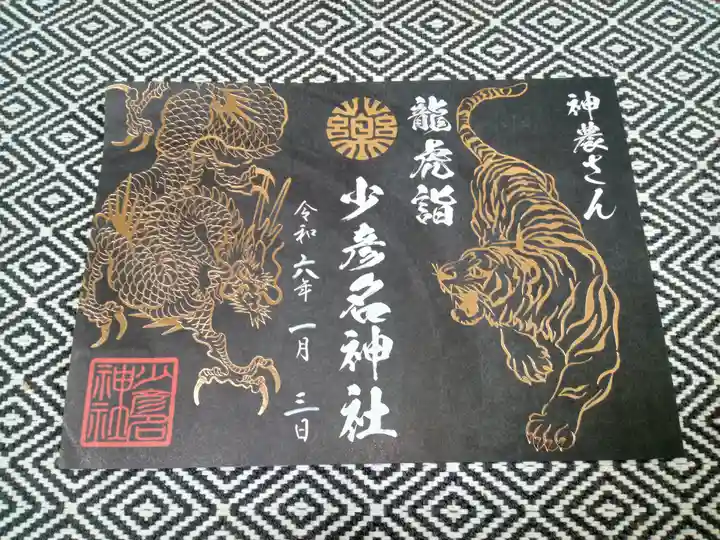 神農さん
龍虎詣
薬
少彦名神社
令和六年一月三日
少彦名神社